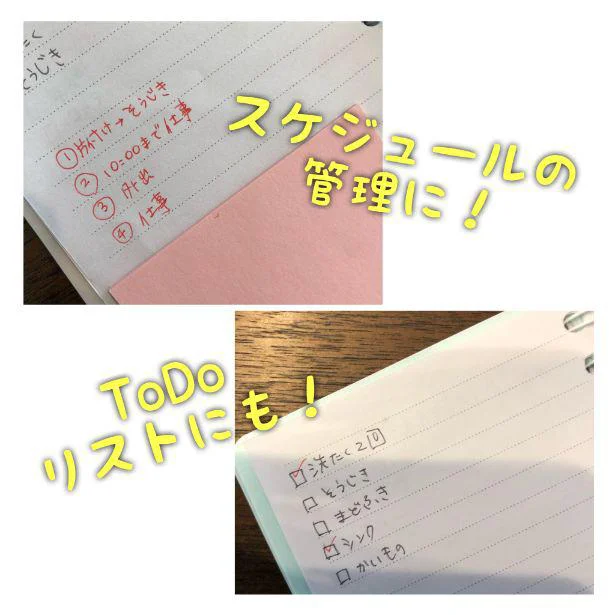 たく
そうじき
①片付け→そうじき
②10:00まで仕事
③外出
④仕事
スケジュールの
管理に！
ToDo
リストにも！
洗たく2回
そうじき
まどふき
シンク
かいもの